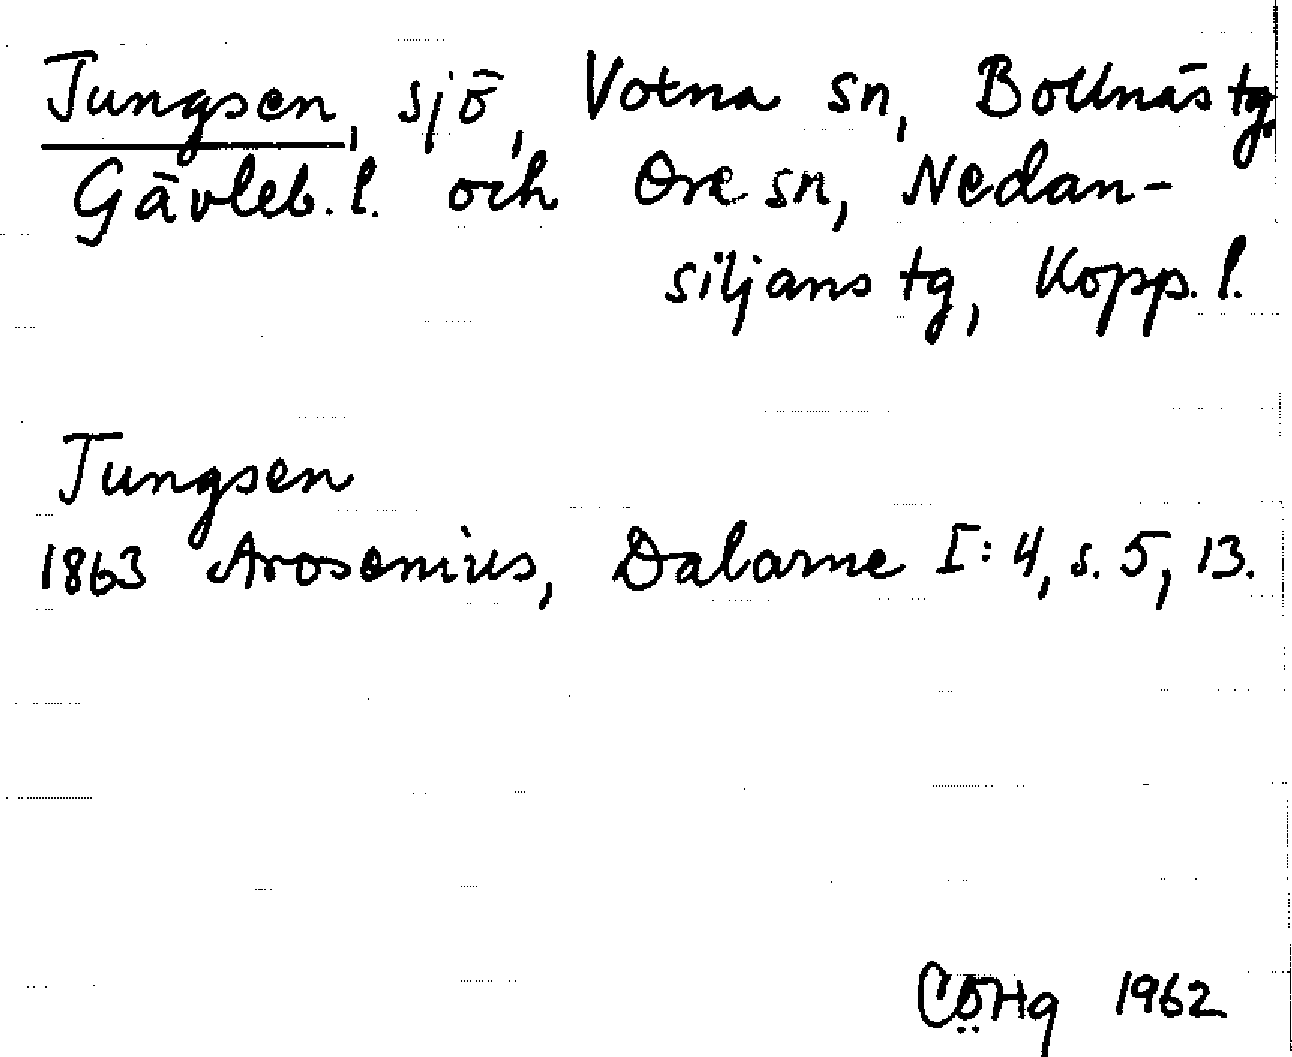 Jungsen, sjö, Votna sn, Bollnäs tg.
Gävleb. l. och Ore sn, Nedan-
siljans tg, Kopp. l.
Jungsen
1863 Arosenius, Dalarne I: 4, s. 5, 13.
CÖHg 1962